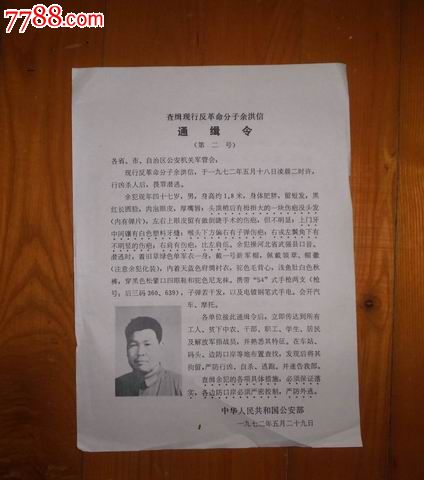 7788.com
查缉现行反革命分子余洪信
通缉令
(第二号)
各省、市、自治区公安机关军管会：
现行反革命分子余洪信，于一九七二年五月十八日凌晨二时许，
行凶杀人后，畏罪潜逃。
余犯现年四十七岁，男，身高约1.8米，身体肥胖，留短发，黑
红长圆脸，内泡眼皮，厚嘴唇；头顶稍后有拇指大的一块伤疤没头发
(内有弹片)，左右上眼皮留有做倒睫手术的伤疤，但不明显；上门牙
中间镶有白色塑料牙缝；喉头下方偏右有子弹伤疤；右或左鬓角下有
不明显的伤疤；右肩有伤疤，比左肩低。余犯操河北省武强县口音。
潜逃时，着旧草绿色单军衣一身，戴一号新军帽，佩戴领章、帽徽
(注意余犯化装)，内着天蓝色府绸衬衣，驼色毛背心，浅鱼肚白色秋
裤，穿黑色松紧口四眼鞋和驼色尼龙袜。携带“54”式手枪两支(枪
号：后三码260、639)，子弹若干发，以及电镀钢笔式手电。会开汽
车、摩托。
各单位接此通缉令后，立即传达到所有
工人、贫下中农、干部、职工、学生、居民
及解放军指战员，并熟悉其特征。在车站、
码头、边防口岸等地布置查找，发现后将其
拘留，严防行凶、自杀、逃跑。并速告我部。
查缉余犯的各项具体措施，必须保证落
实，各边防口岸必须严密控制，严防外逃。
中华人民共和国公安部
一九七二年五月二十九日